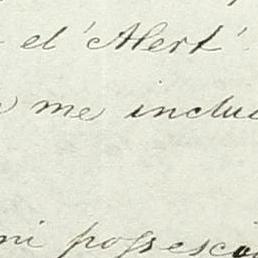 el 'Alert'
me inclui
mi possesió